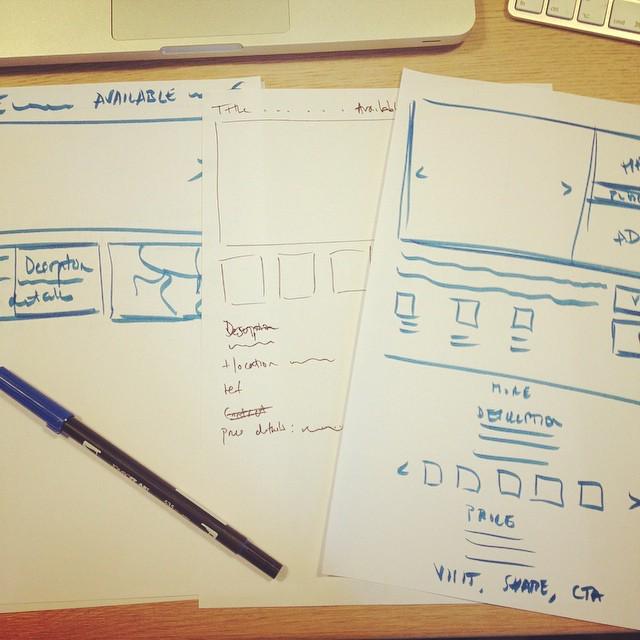 AVAILABLE
Description
details
Title
Description
+ location
ref
Contact
price details:
MORE
DESCRIPTION
PRICE
VISIT, SHARE, CTA